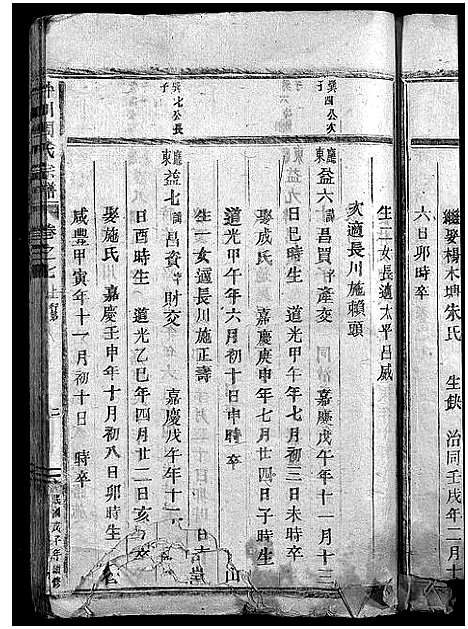 繼娶楊木坤朱氏 生缺 治同壬戌年二月十
六日卯時卒
生二女長適太平呂威
次適長川施賴頭
巽四公次子
廳東益六 諱昌買字產交 嘉慶戊午年十一月十三
日巳時生 道光甲午年六月初三日未時卒
娶成氏 嘉慶庚申年七月廿四日子時生
道光甲午年六月初十日申時卒 山
生一女適長川施正壽
巽七公長子
廳東益七 諱昌資字財交 嘉慶戊午年十一
日酉時生 道光乙巳年四月廿二日亥
娶施氏 嘉慶壬申年十月初八日卯時生
咸豐甲寅年十一月初十日 時卒
周氏宗譜 卷之七
二
民國